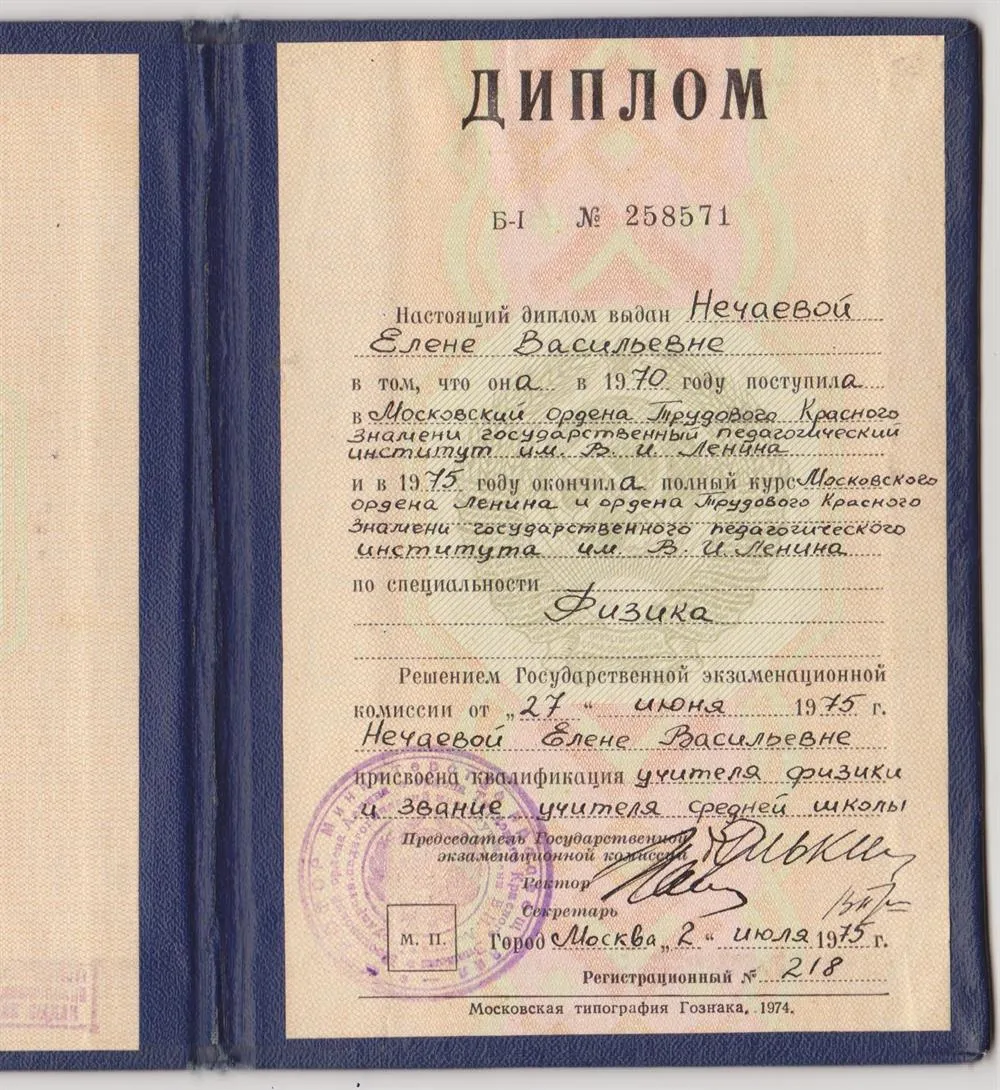 ДИПЛОМ
Б-I № 258571
Настоящий диплом выдан Нечаевой
Елене Васильевне
в том, что она в 1970 году поступила
в Московский ордена Трудового Красного
Знамени государственный педагогический
институт им. В. И. Ленина
и в 1975 году окончила полный курс Московского
ордена Ленина и ордена Трудового Красного
Знамени государственного педагогического
института им. В. И. Ленина
по специальности
Физика
Решением Государственной экзаменационной
комиссии от „27“ июня 1975 г.
Нечаевой Елене Васильевне
присвоена квалификация учителя физики
и звание учителя средней школы
Председатель Государственной
экзаменационной комиссии
Ректор
Секретарь
М. П.
Город Москва „2“ июля 1975 г.
Регистрационный № 218
Московская типография Гознака. 1974.